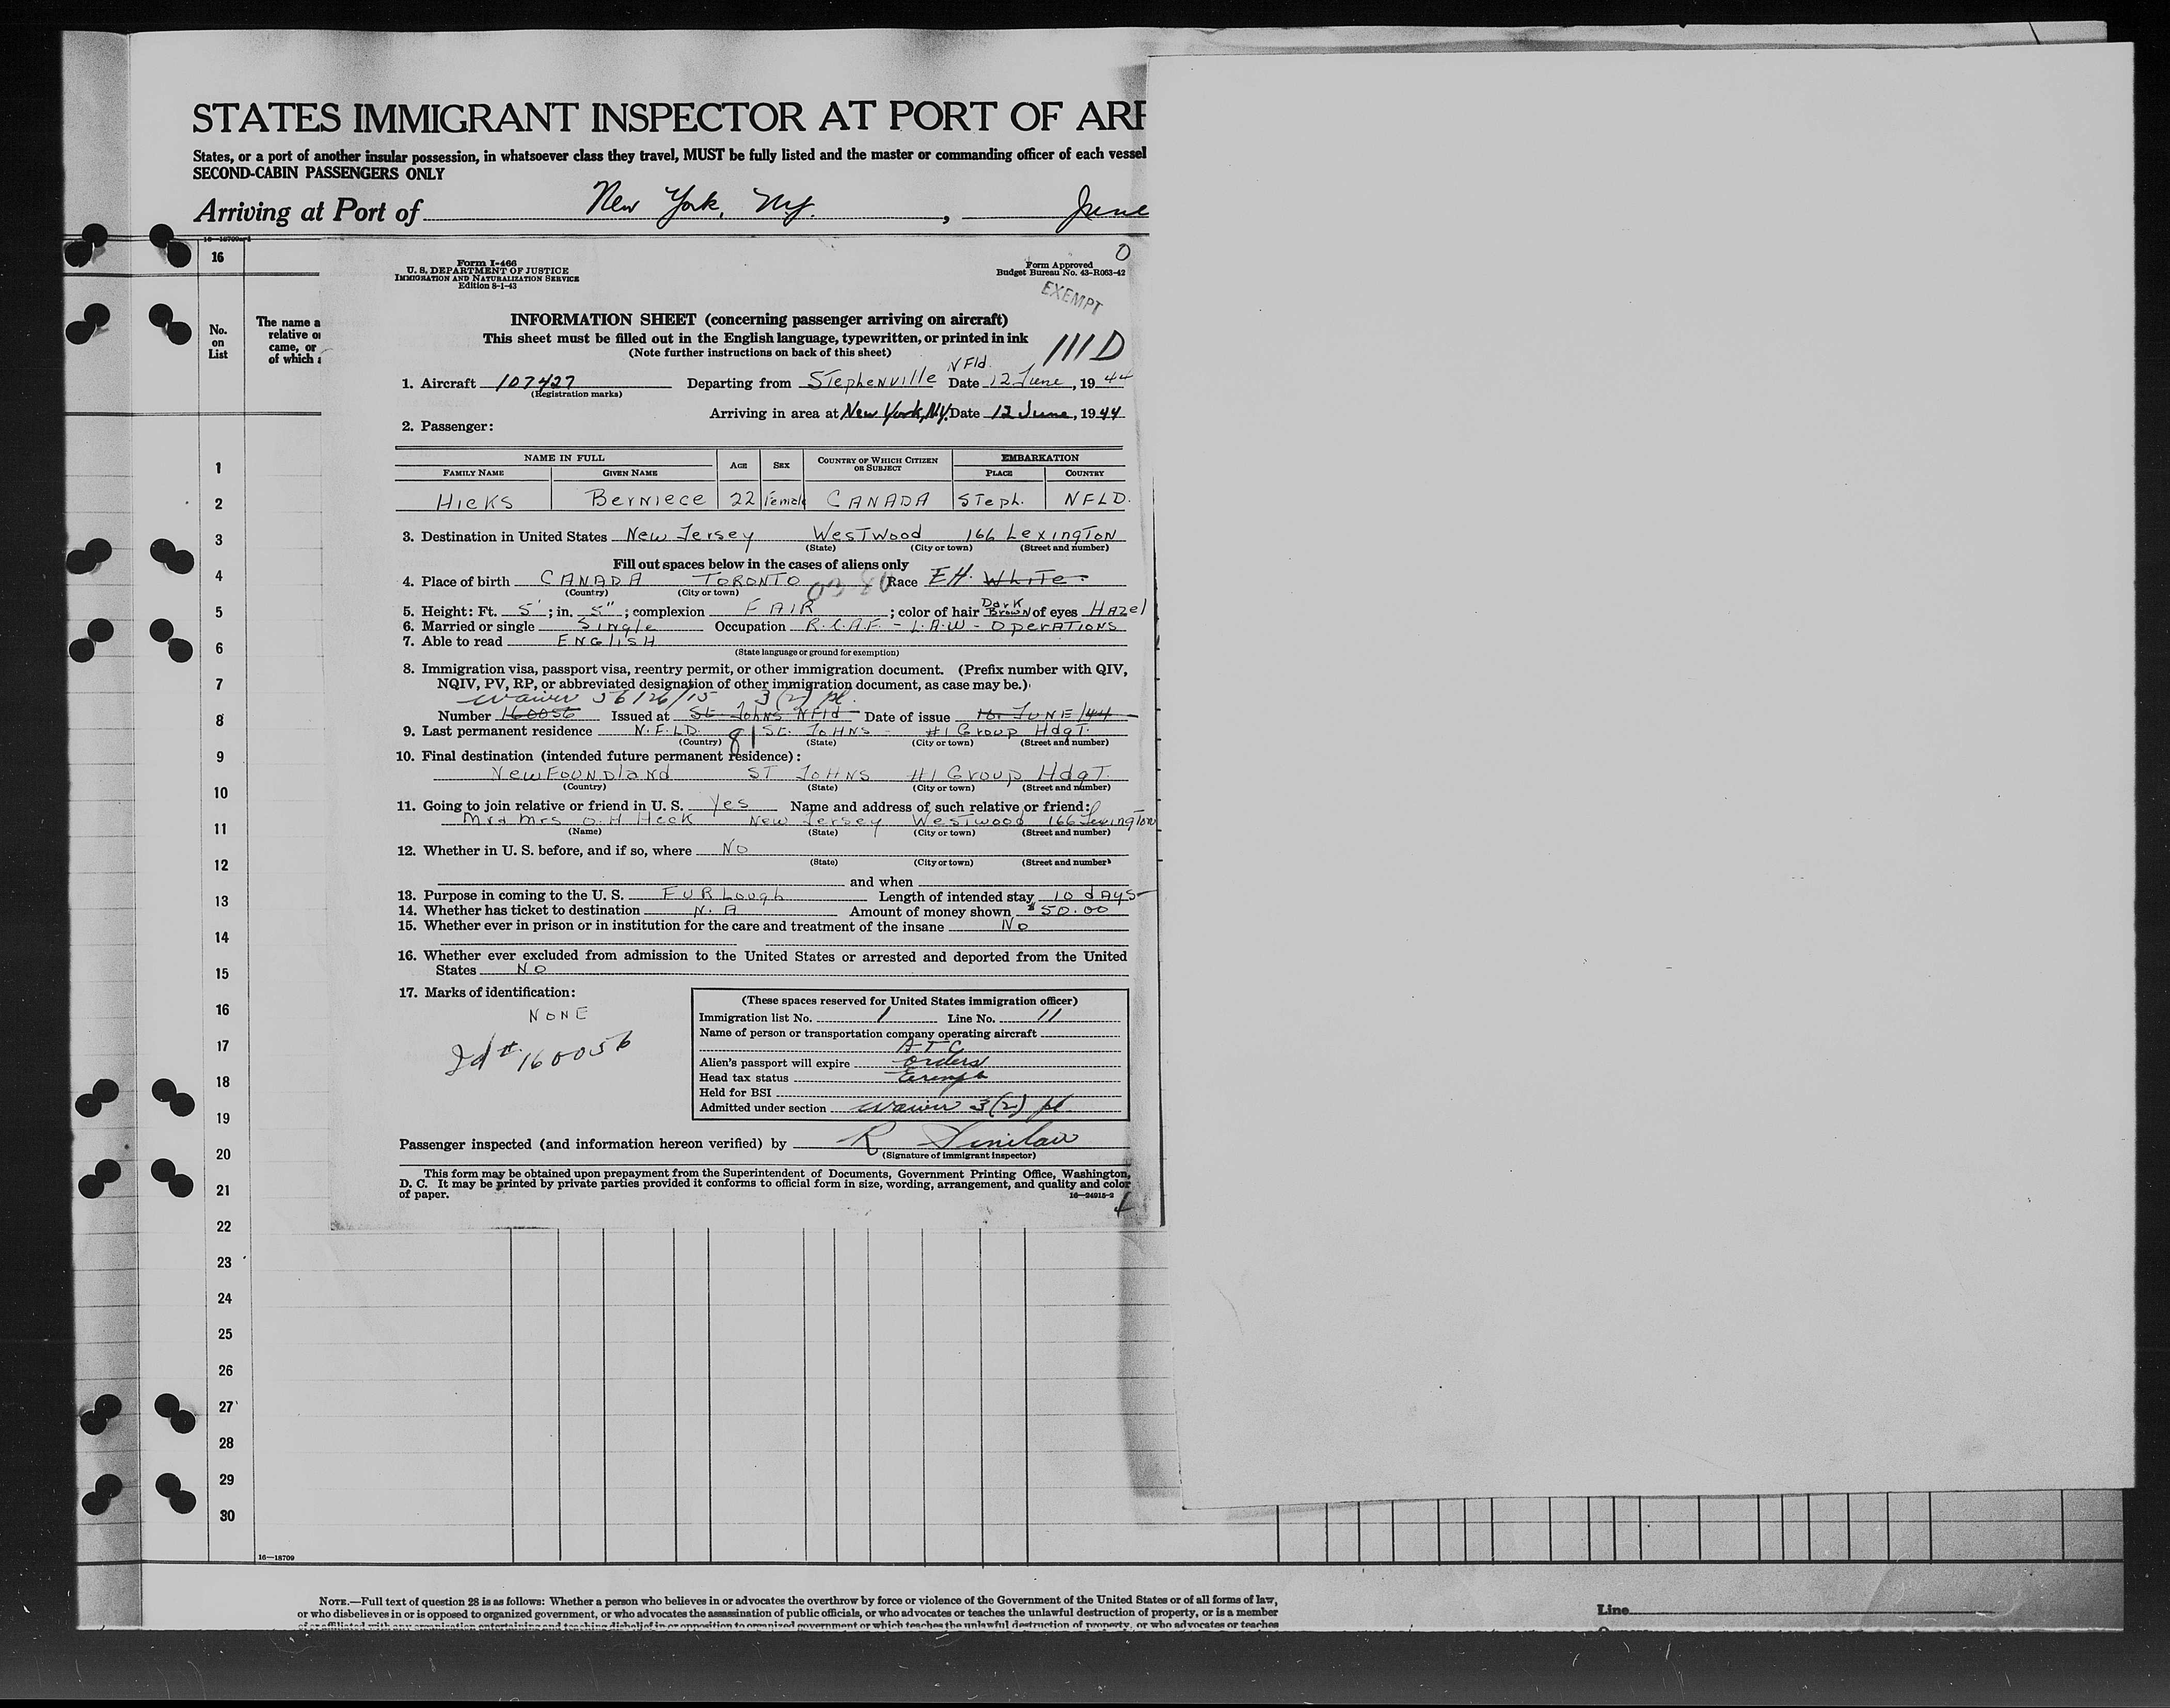 STATES IMMIGRANT INSPECTOR AT PORT OF ARR
States, or a port of another insular possession, in whatsoever class they travel, MUST be fully listed and the master or commanding officer of each vessel
SECOND-CABIN PASSENGERS ONLY
Arriving at Port of New York, N.Y. , June
16
No. on List
The name a
relative or
came, or
of which a
0
Form I-466
U. S. DEPARTMENT OF JUSTICE
IMMIGRATION AND NATURALIZATION SERVICE
Edition 8-1-43
Form Approved
Budget Bureau No. 43-R063-42
EXEMPT
INFORMATION SHEET (concerning passenger arriving on aircraft)
This sheet must be filled out in the English language, typewritten, or printed in ink
(Note further instructions on back of this sheet)
111 D
NFld.
1. Aircraft 107427 Departing from Stephenville Date 12 June, 1944
(Registration marks)
Arriving in area at New York, NY. Date 12 June, 1944
2. Passenger:
NAME IN FULL AGE SEX COUNTRY OF WHICH CITIZEN OR SUBJECT EMBARKATION
FAMILY NAME GIVEN NAME PLACE COUNTRY
Hicks Berniece 22 Female CANADA Steph. NFLD.
3. Destination in United States New Jersey Westwood 166 Lexington
(State) (City or town) (Street and number)
Fill out spaces below in the cases of aliens only
4. Place of birth CANADA TORONTO Race EH. White
(Country) (City or town)
5. Height: Ft. 5' ; in. 5" ; complexion FAIR ; color of hair Dark Brown of eyes Hazel
6. Married or single Single Occupation R.C.A.F. - L.A.W - Operations
7. Able to read English
(State language or ground for exemption)
8. Immigration visa, passport visa, reentry permit, or other immigration document. (Prefix number with QIV,
NQIV, PV, RP, or abbreviated designation of other immigration document, as case may be.)
waiver 56126/15 3(2) pl.
Number 160056 Issued at St Johns Nfld Date of issue 10. JUNE/44
9. Last permanent residence N.F.LD. St. Johns - #1 Group Hdqt.
(Country) (State) (City or town) (Street and number)
10. Final destination (intended future permanent residence):
Newfoundland ST JOHNS #1 Group Hdqt.
(Country) (State) (City or town) (Street and number)
11. Going to join relative or friend in U. S. Yes Name and address of such relative or friend:
Mr & Mrs O. H Heck New Jersey Westwood 166 Lexington
(Name) (State) (City or town) (Street and number)
12. Whether in U. S. before, and if so, where No
(State) (City or town) (Street and number)
and when
13. Purpose in coming to the U. S. FURLough Length of intended stay 10 days
14. Whether has ticket to destination N. A Amount of money shown $50.00
15. Whether ever in prison or in institution for the care and treatment of the insane No
16. Whether ever excluded from admission to the United States or arrested and deported from the United
States NO
17. Marks of identification:
NONE
Id # 160056
(These spaces reserved for United States immigration officer)
Immigration list No. 1 Line No. 11
Name of person or transportation company operating aircraft
A T C
Alien's passport will expire orders
Head tax status Exempt
Held for BSI
Admitted under section waiver 3(2) pl
Passenger inspected (and information hereon verified) by R Sinclair
(Signature of immigrant inspector)
This form may be obtained upon prepayment from the Superintendent of Documents, Government Printing Office, Washington,
D. C. It may be printed by private parties provided it conforms to official form in size, wording, arrangement, and quality and color
of paper.
16—24915-2
1
2
3
4
5
6
7
8
9
10
11
12
13
14
15
16
17
18
19
20
21
22
23
24
25
26
27
28
29
30
16—18709
NOTE.—Full text of question 28 is as follows: Whether a person who believes in or advocates the overthrow by force or violence of the Government of the United States or of all forms of law,
or who disbelieves in or is opposed to organized government, or who advocates the assassination of public officials, or who advocates or teaches the unlawful destruction of property, or is a member
of or affiliated with any organization entertaining and teaching disbelief in or opposition to organized government or which teaches the unlawful destruction of property, or who advocates or teaches
Line